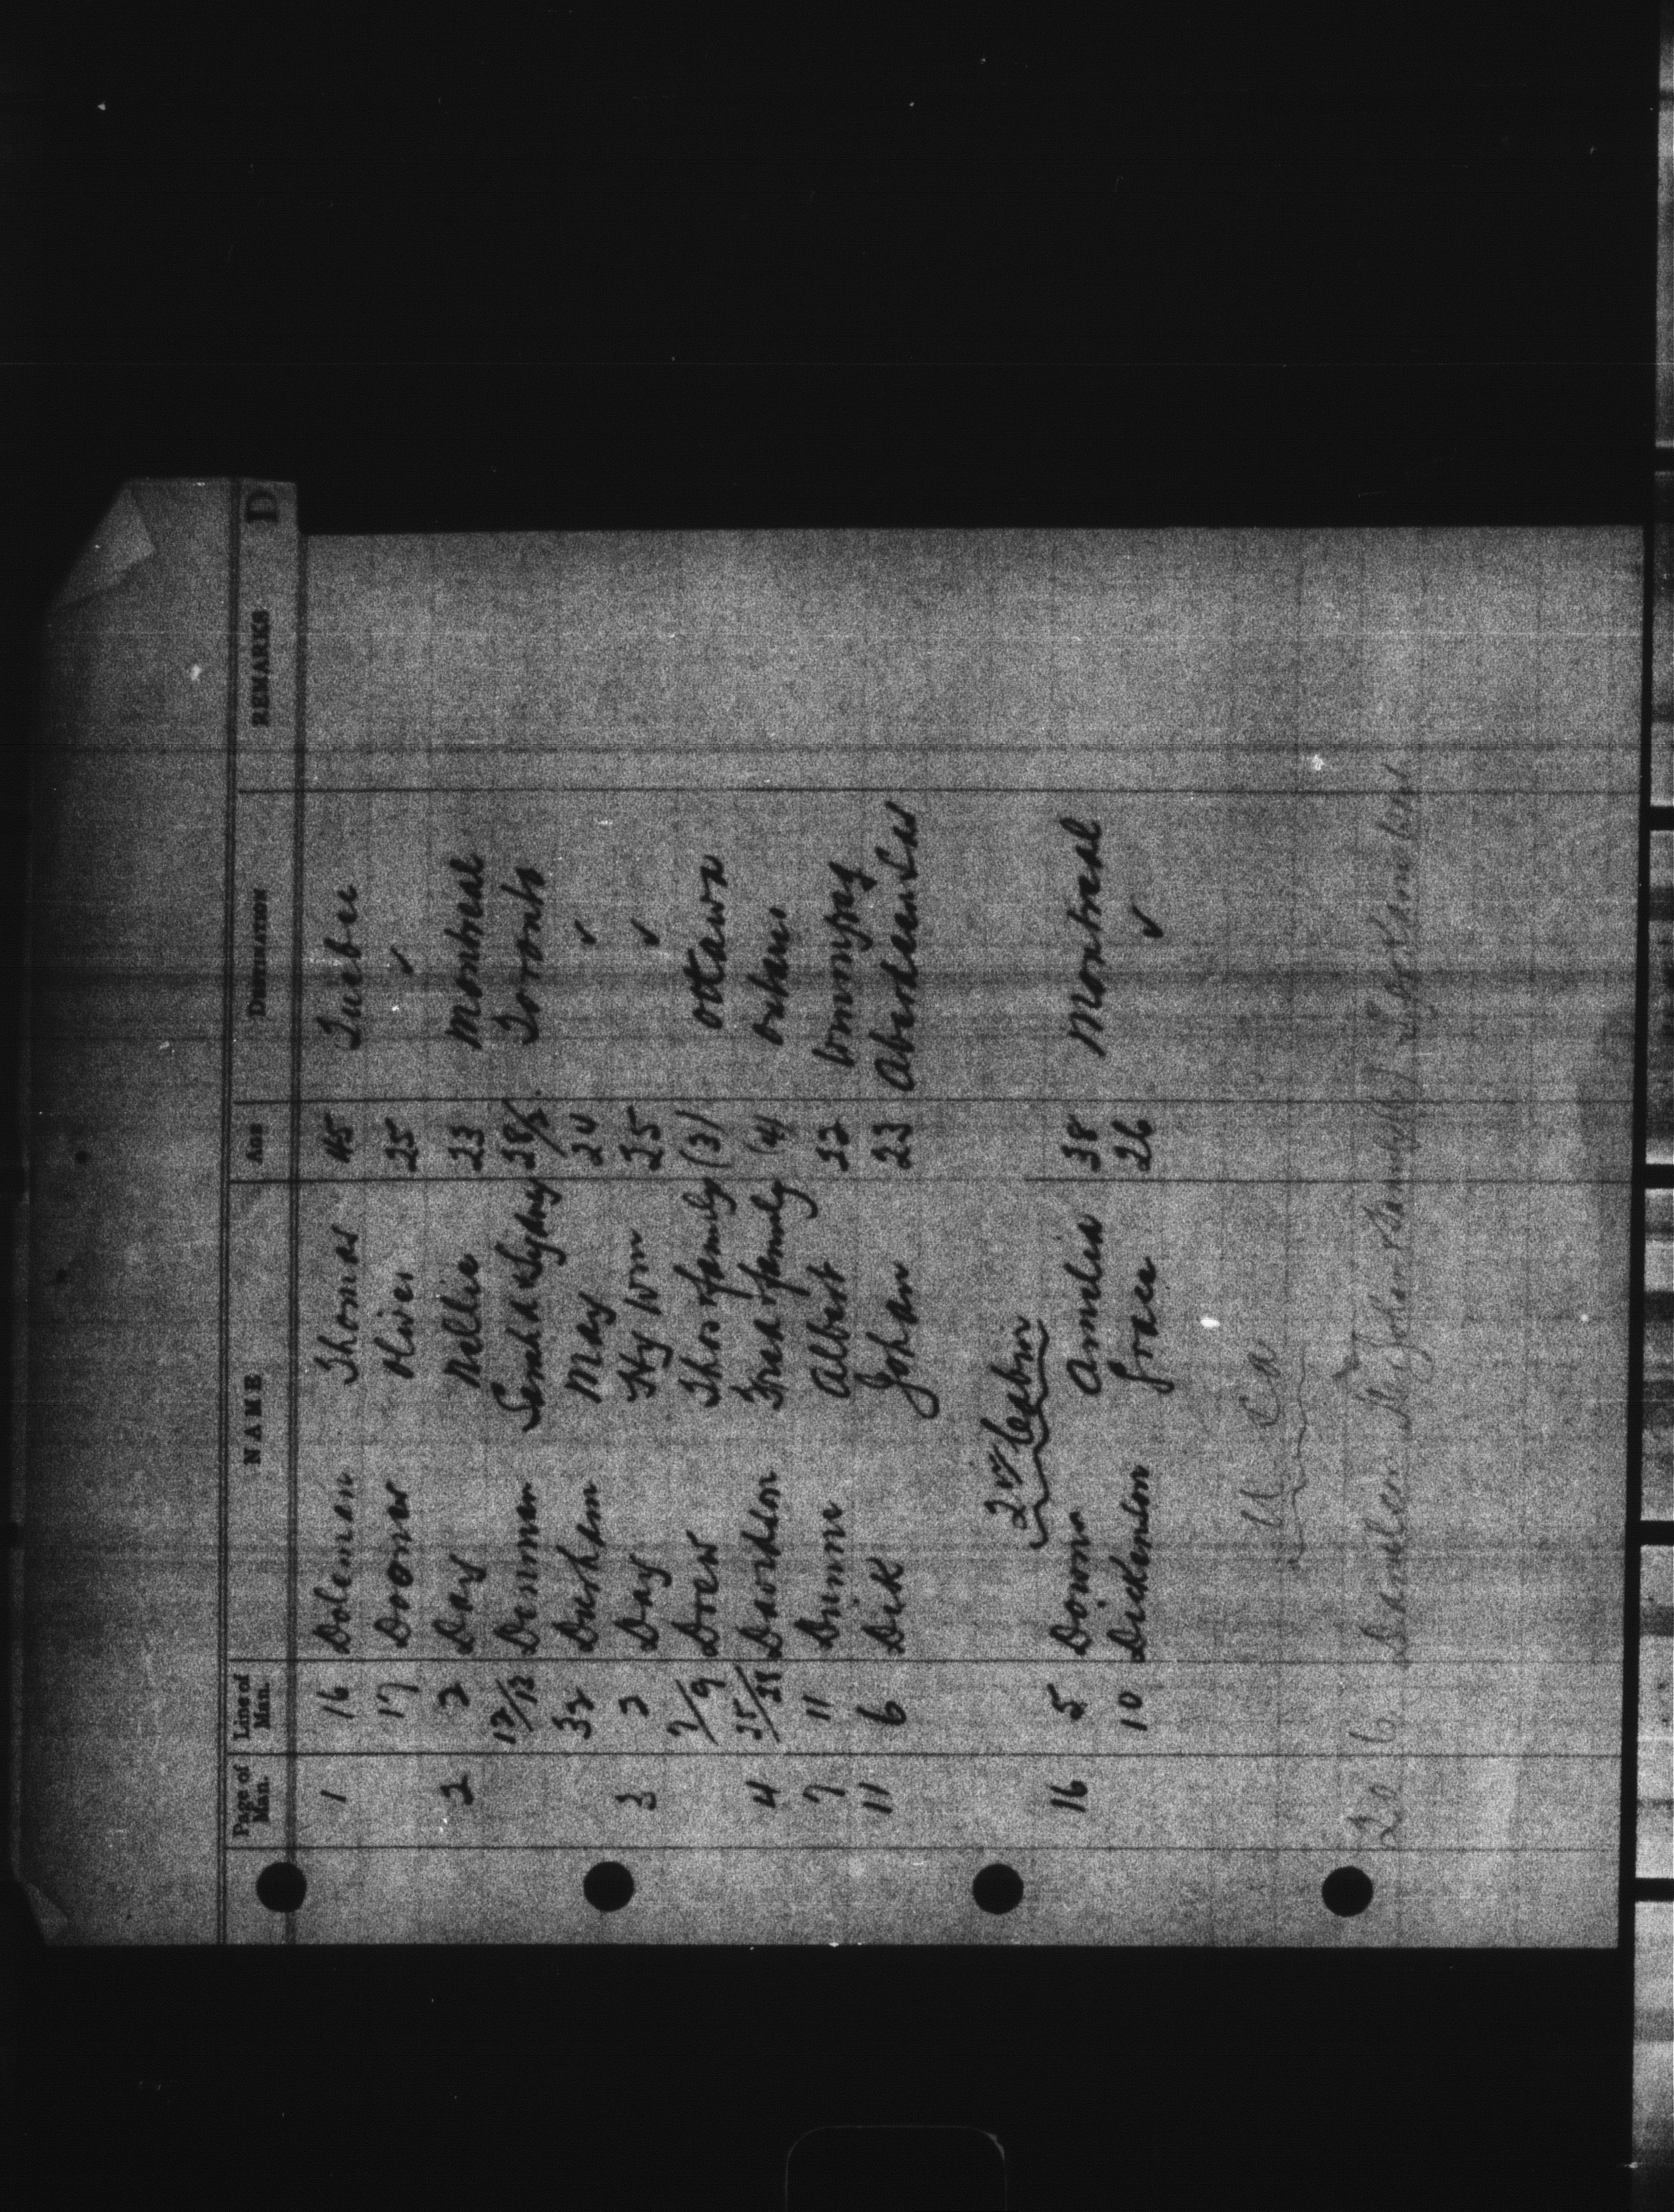 Page of Man. Line of Man. NAME AGE DESTINATION REMARKS D
1 16 Doleman Thomas 45 Quebec
17 Doomar Oliver 25 ✓
2 2 Day Nellie 23 Montreal
12/13 Denman Sarah & Sydney 38/5 Toronto
32 Durham May 20 ✓
3 2 Day Hy Wm 25 ✓
7/9 Drew Thos & family (3) Ottawa
4 35/38 Davidson Fred & family (4)
7 11 Dunn Albert 32 Winnipeg
11 6 Dick Johan 23 Aberdeen
2nd Cabin
16 5 Down Amelia 38 Montreal
10 Dickenson Grace 26 ✓
20 6 John & family Spokane